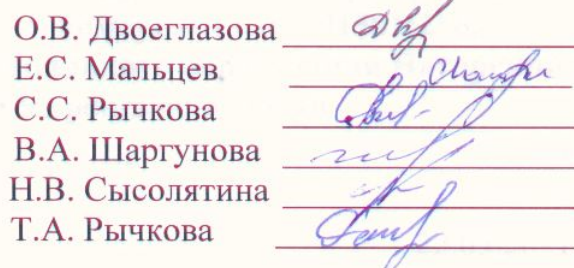 О.В. Двоеглазова
Е.С. Мальцев
С.С. Рычкова
В.А. Шаргунова
Н.В. Сысолятина
Т.А. Рычкова